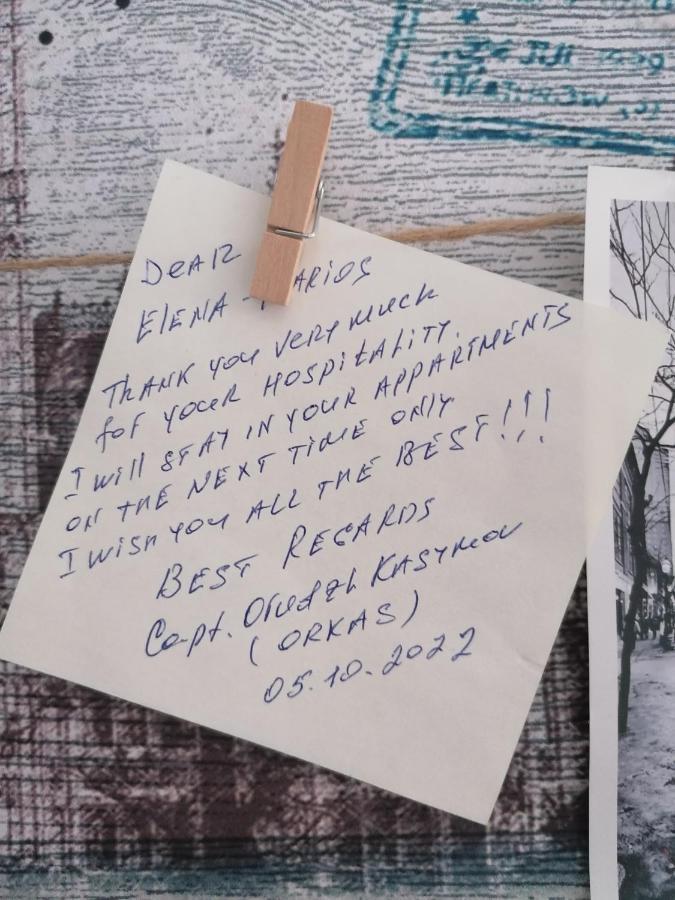 DEAR
ELENA - ARIOS
THANK YOU VERY MUCH
FOR YOUR HOSPITALITY.
I WILL STAY IN YOUR APPARTMENTS
ON THE NEXT TIME ONLY
I WISH YOU ALL THE BEST!!!
BEST REGARDS
Capt. KASYMOV
(ORKAS)
05.10.2022